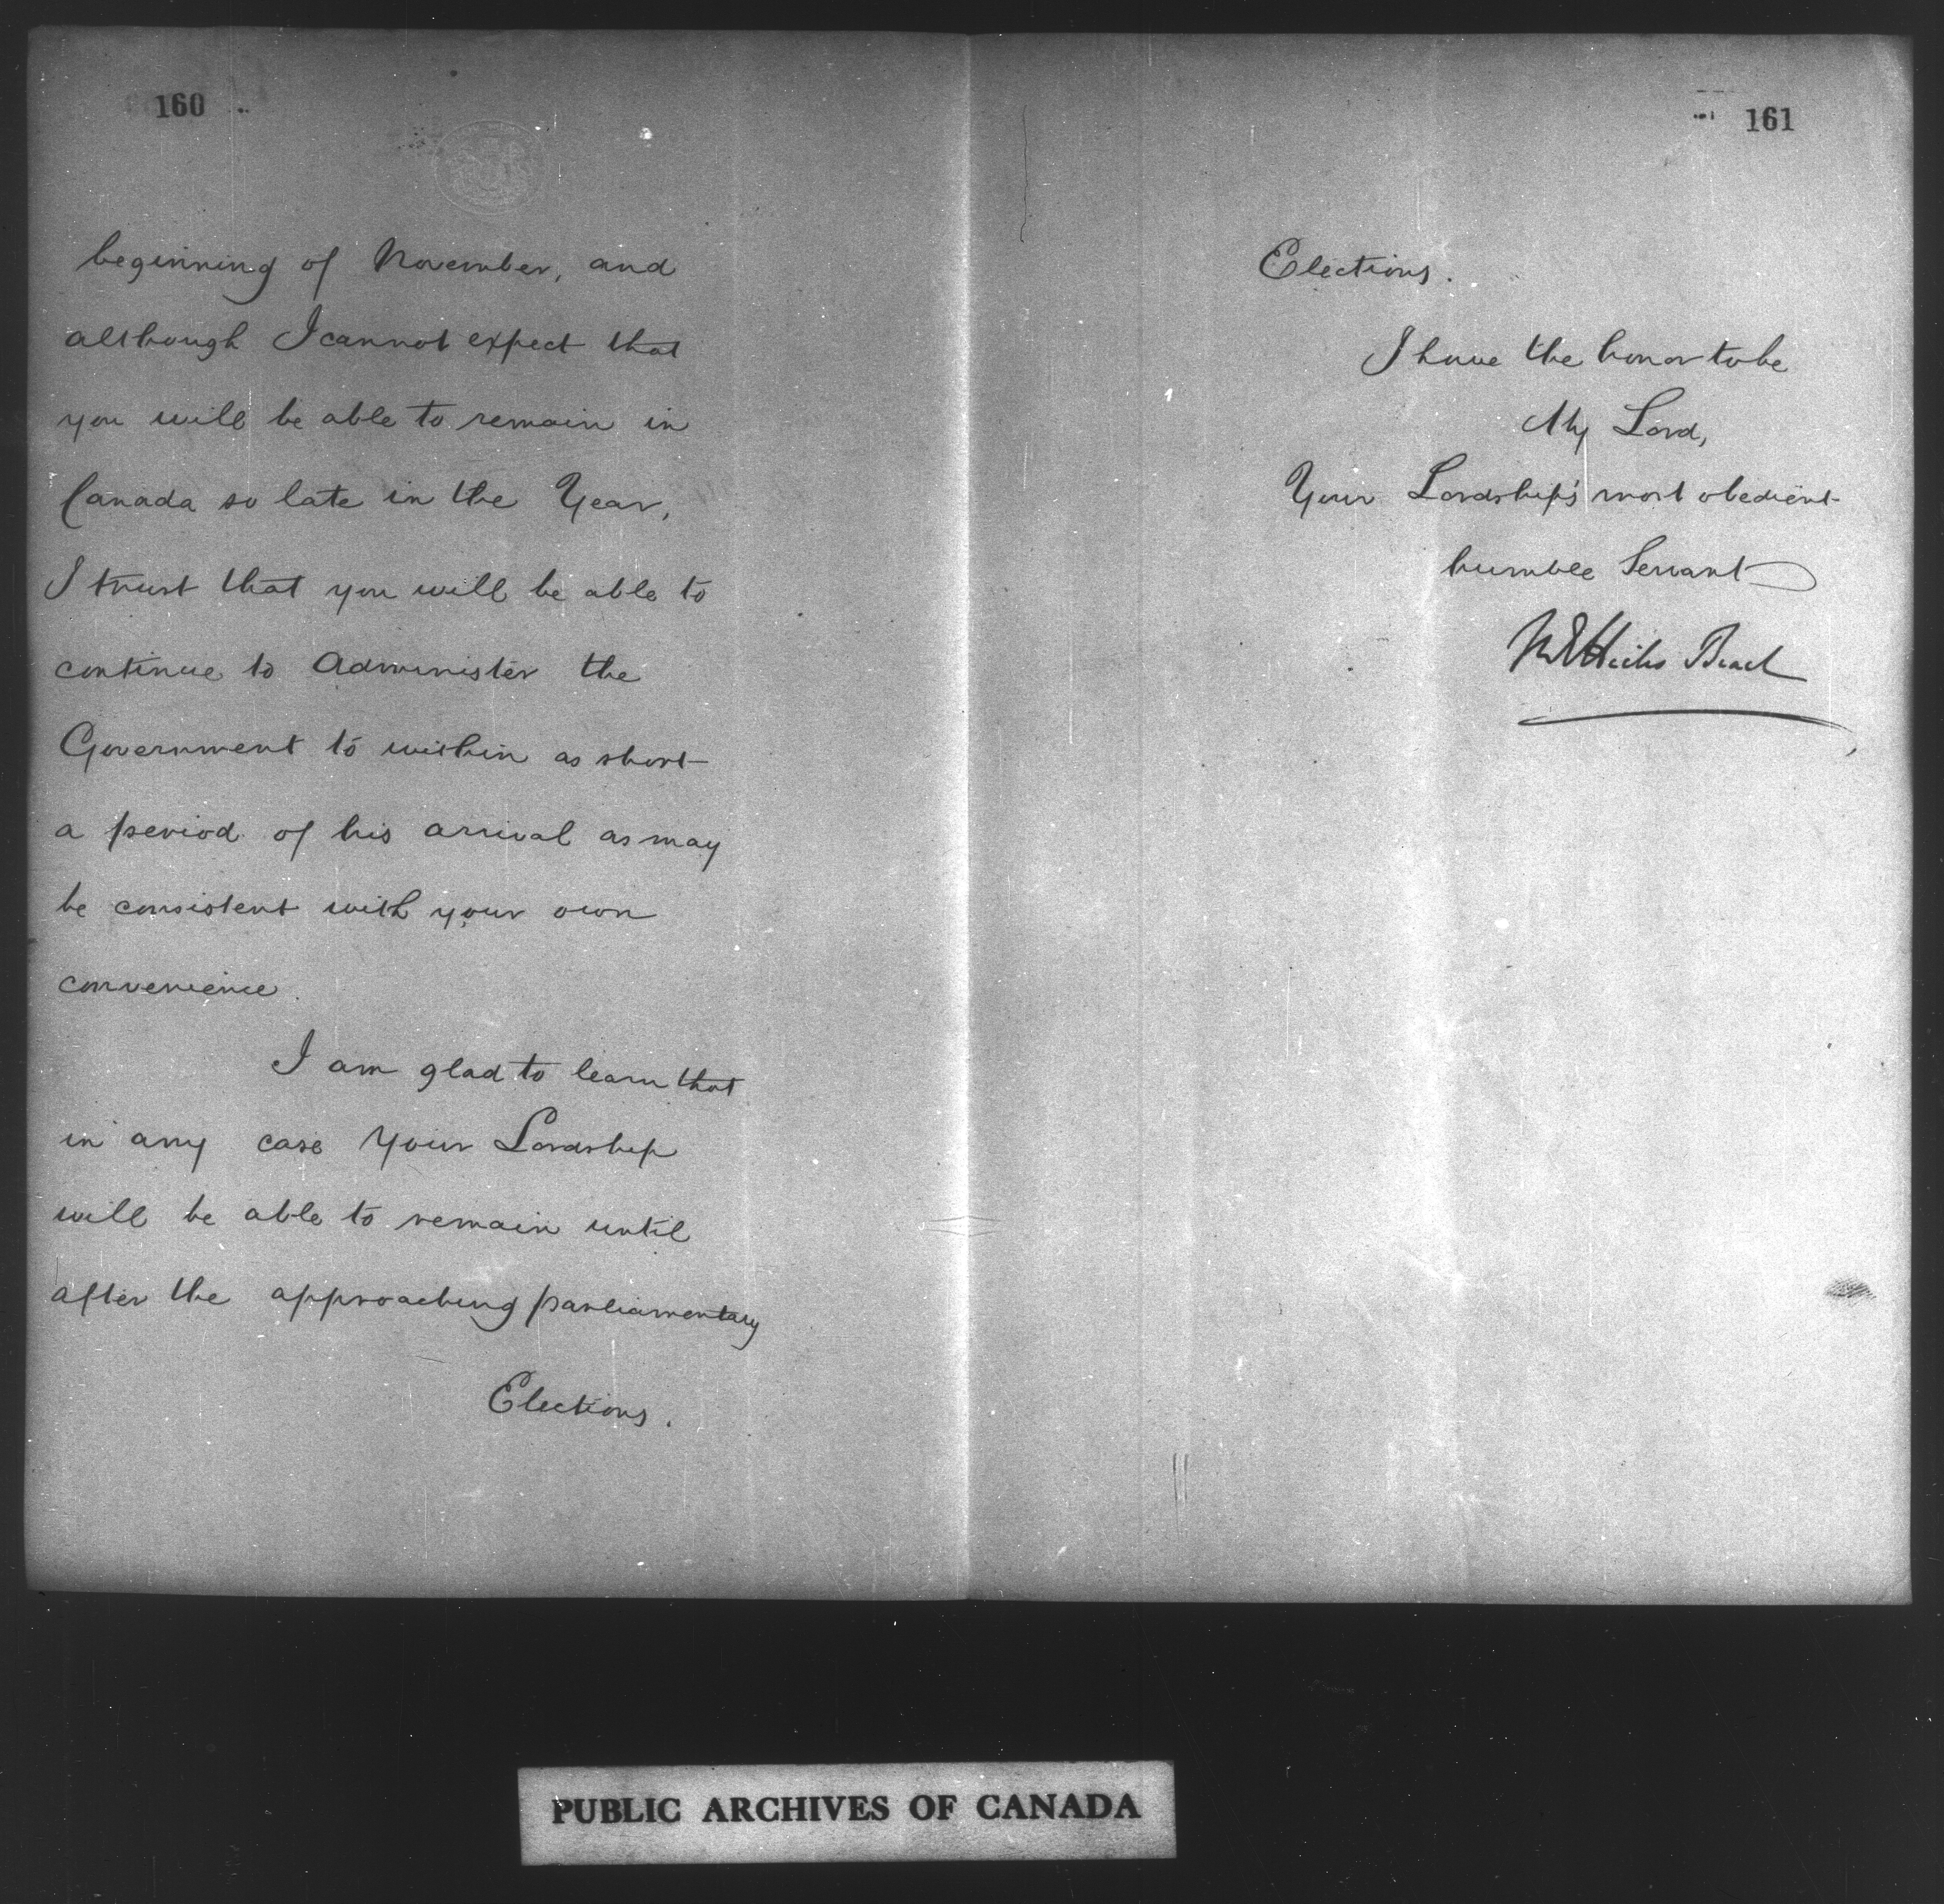 160
beginning of November, and
although I cannot expect that
you will be able to remain in
Canada so late in the Year,
I trust that you will be able to
continue to administer the
Government to within as short
a period of his arrival as may
be consistent with your own
convenience.
I am glad to learn that
in any case Your Lordship
will be able to remain until
after the approaching parliamentary
Elections.
161
Elections.
I have the honor to be
My Lord,
Your Lordship's most obedient
humble Servant
M E Hicks Beach
PUBLIC ARCHIVES OF CANADA